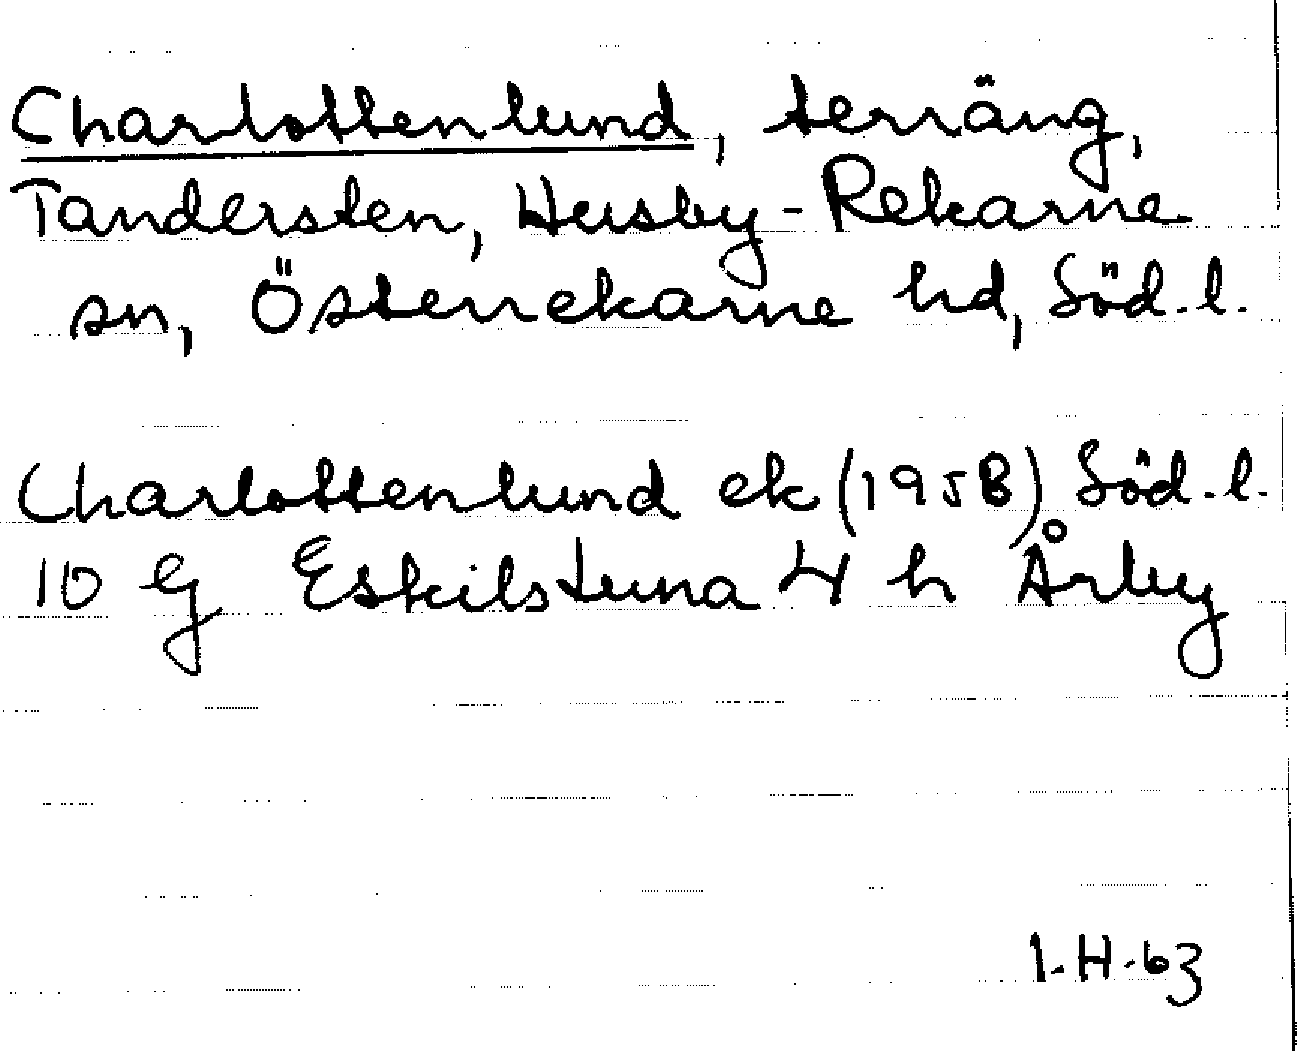 Charlottenlund, terräng,
Tandersten, Husby-Rekarne
sn, Österrekarne hd, Söd.l.
Charlottenlund ek (1958) Söd.l.
10 G Eskilstuna 4 h Årby
1.H.63